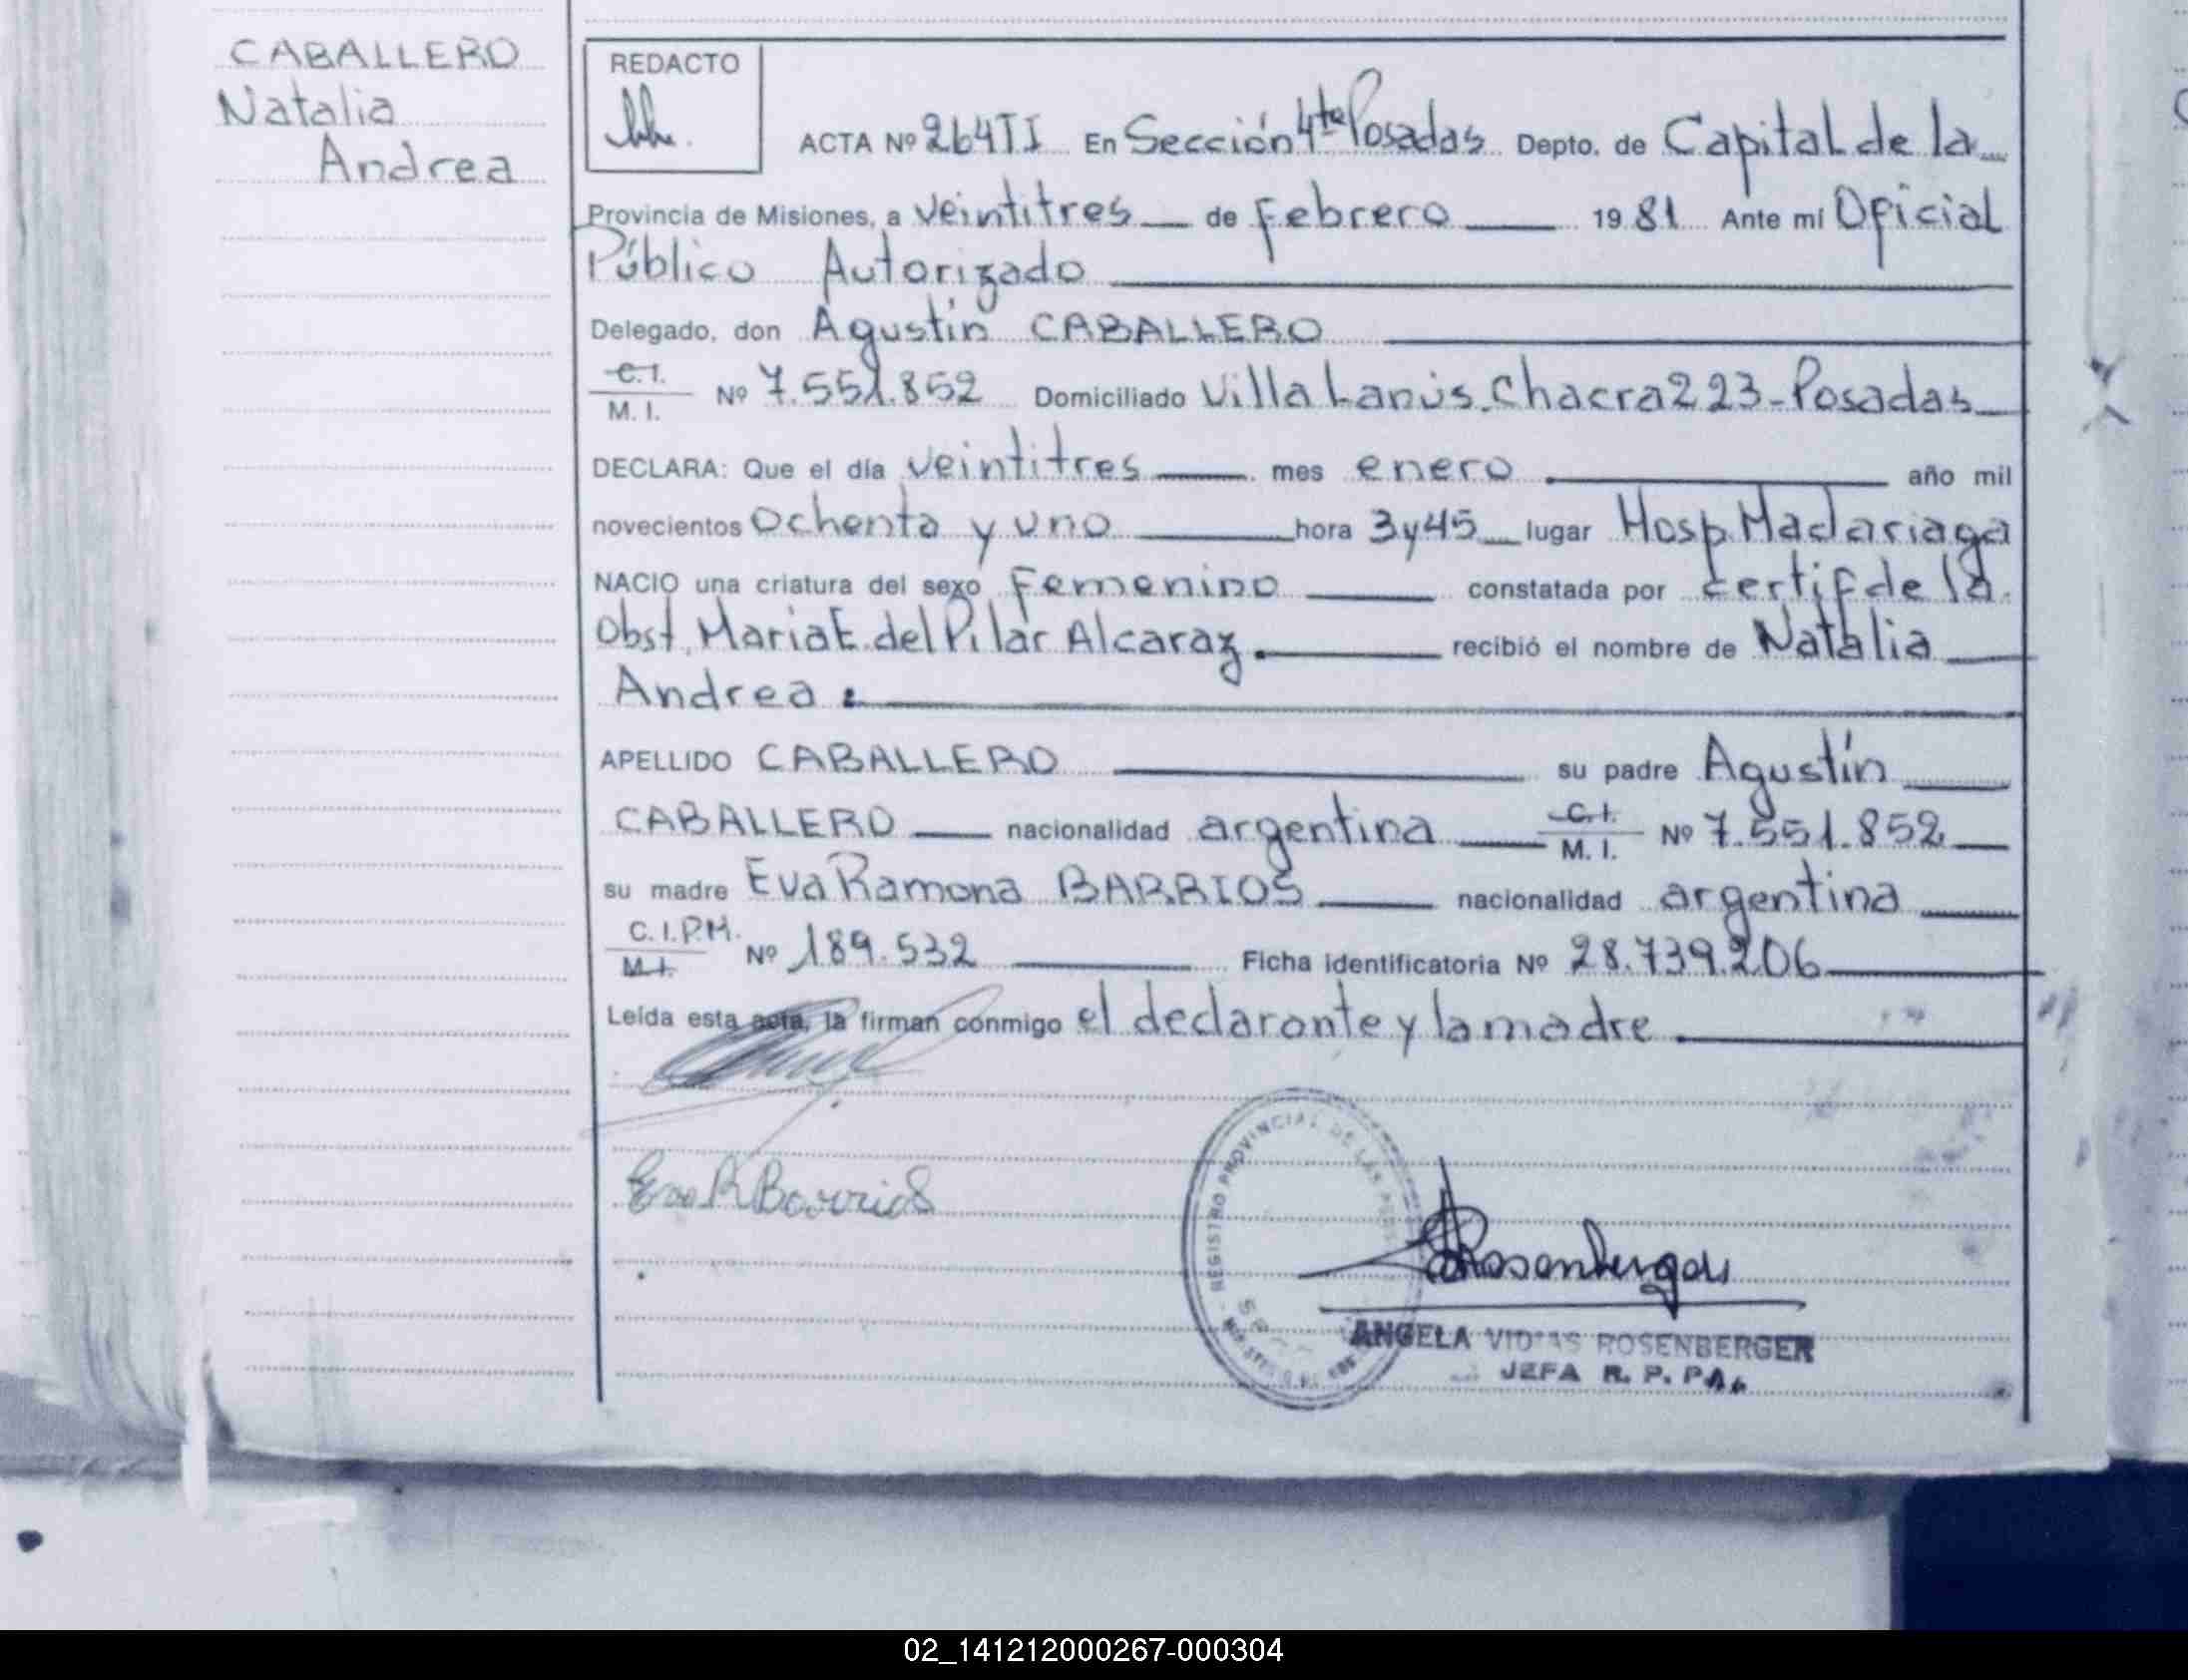 CABALLERO
Natalia
Andrea
REDACTO
ACTA Nº 264TI En Sección 4ta Posadas Depto. de Capital de la
Provincia de Misiones, a veintitres de Febrero 1981 Ante mí Oficial
Público Autorizado
Delegado, don Agustín CABALLERO
C.I.
M. I. Nº 7.551.852 Domiciliado Villa Lanús. Chacra 223-Posadas
DECLARA: Que el día veintitres mes enero año mil
novecientos Ochenta y uno hora 3y45 lugar Hosp. Madariaga
NACIO una criatura del sexo Femenino constatada por certif de la
Obst. Maria E. del Pilar Alcaraz. recibió el nombre de Natalia
Andrea
APELLIDO CABALLERO su padre Agustín
CABALLERO nacionalidad argentina C.I. M. I. Nº 7.551.852
su madre Eva Ramona BARRIOS nacionalidad argentina
C.I.P.M. M.I. Nº 189.532 Ficha identificatoria Nº 28.739.206
Leída esta acta, la firman conmigo el declarante y la madre
Eva R Barrios
REGISTRO PROVINCIAL DE LAS
Rosenberger
ANGELA ROSENBERGER
JEFA R. P. PA.
02_141212000267-000304